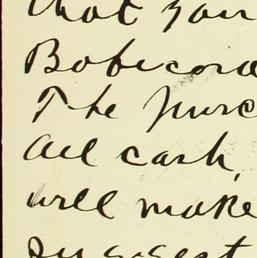 that you
Bobcora
The purc
all cash,
will make
suggest